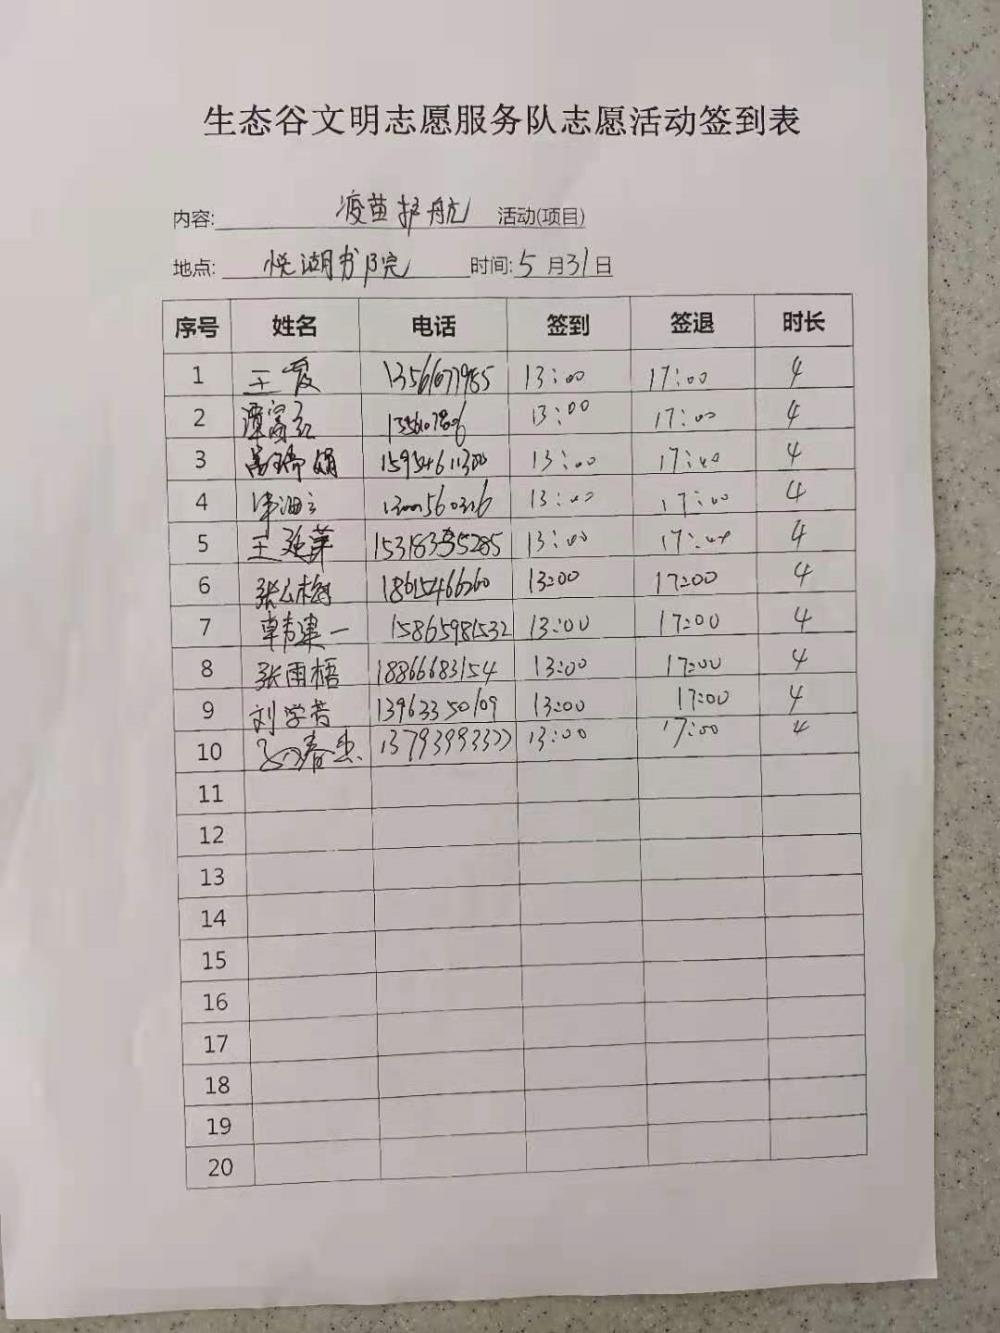 生态谷文明志愿服务队志愿活动签到表
内容: 疫苗护航 活动(项目)
地点: 悦湖书院 时间: 5 月 31 日
序号 姓名 电话 签到 签退 时长
1 王 13:00 17:00 4
2 谭富 13:00 17:00 4
3 娟 15954611300 13:00 17:00 4
4 13:00 17:00 4
5 王 13:00 17:00 4
6 张 13:00 17:00 4
7 韩建一 15865981532 13:00 17:00 4
8 张雨梧 18866683154 13:00 17:00 4
9 刘学 13963350109 13:00 17:00 4
10 春 13793993377 13:00 17:00 4
11
12
13
14
15
16
17
18
19
20